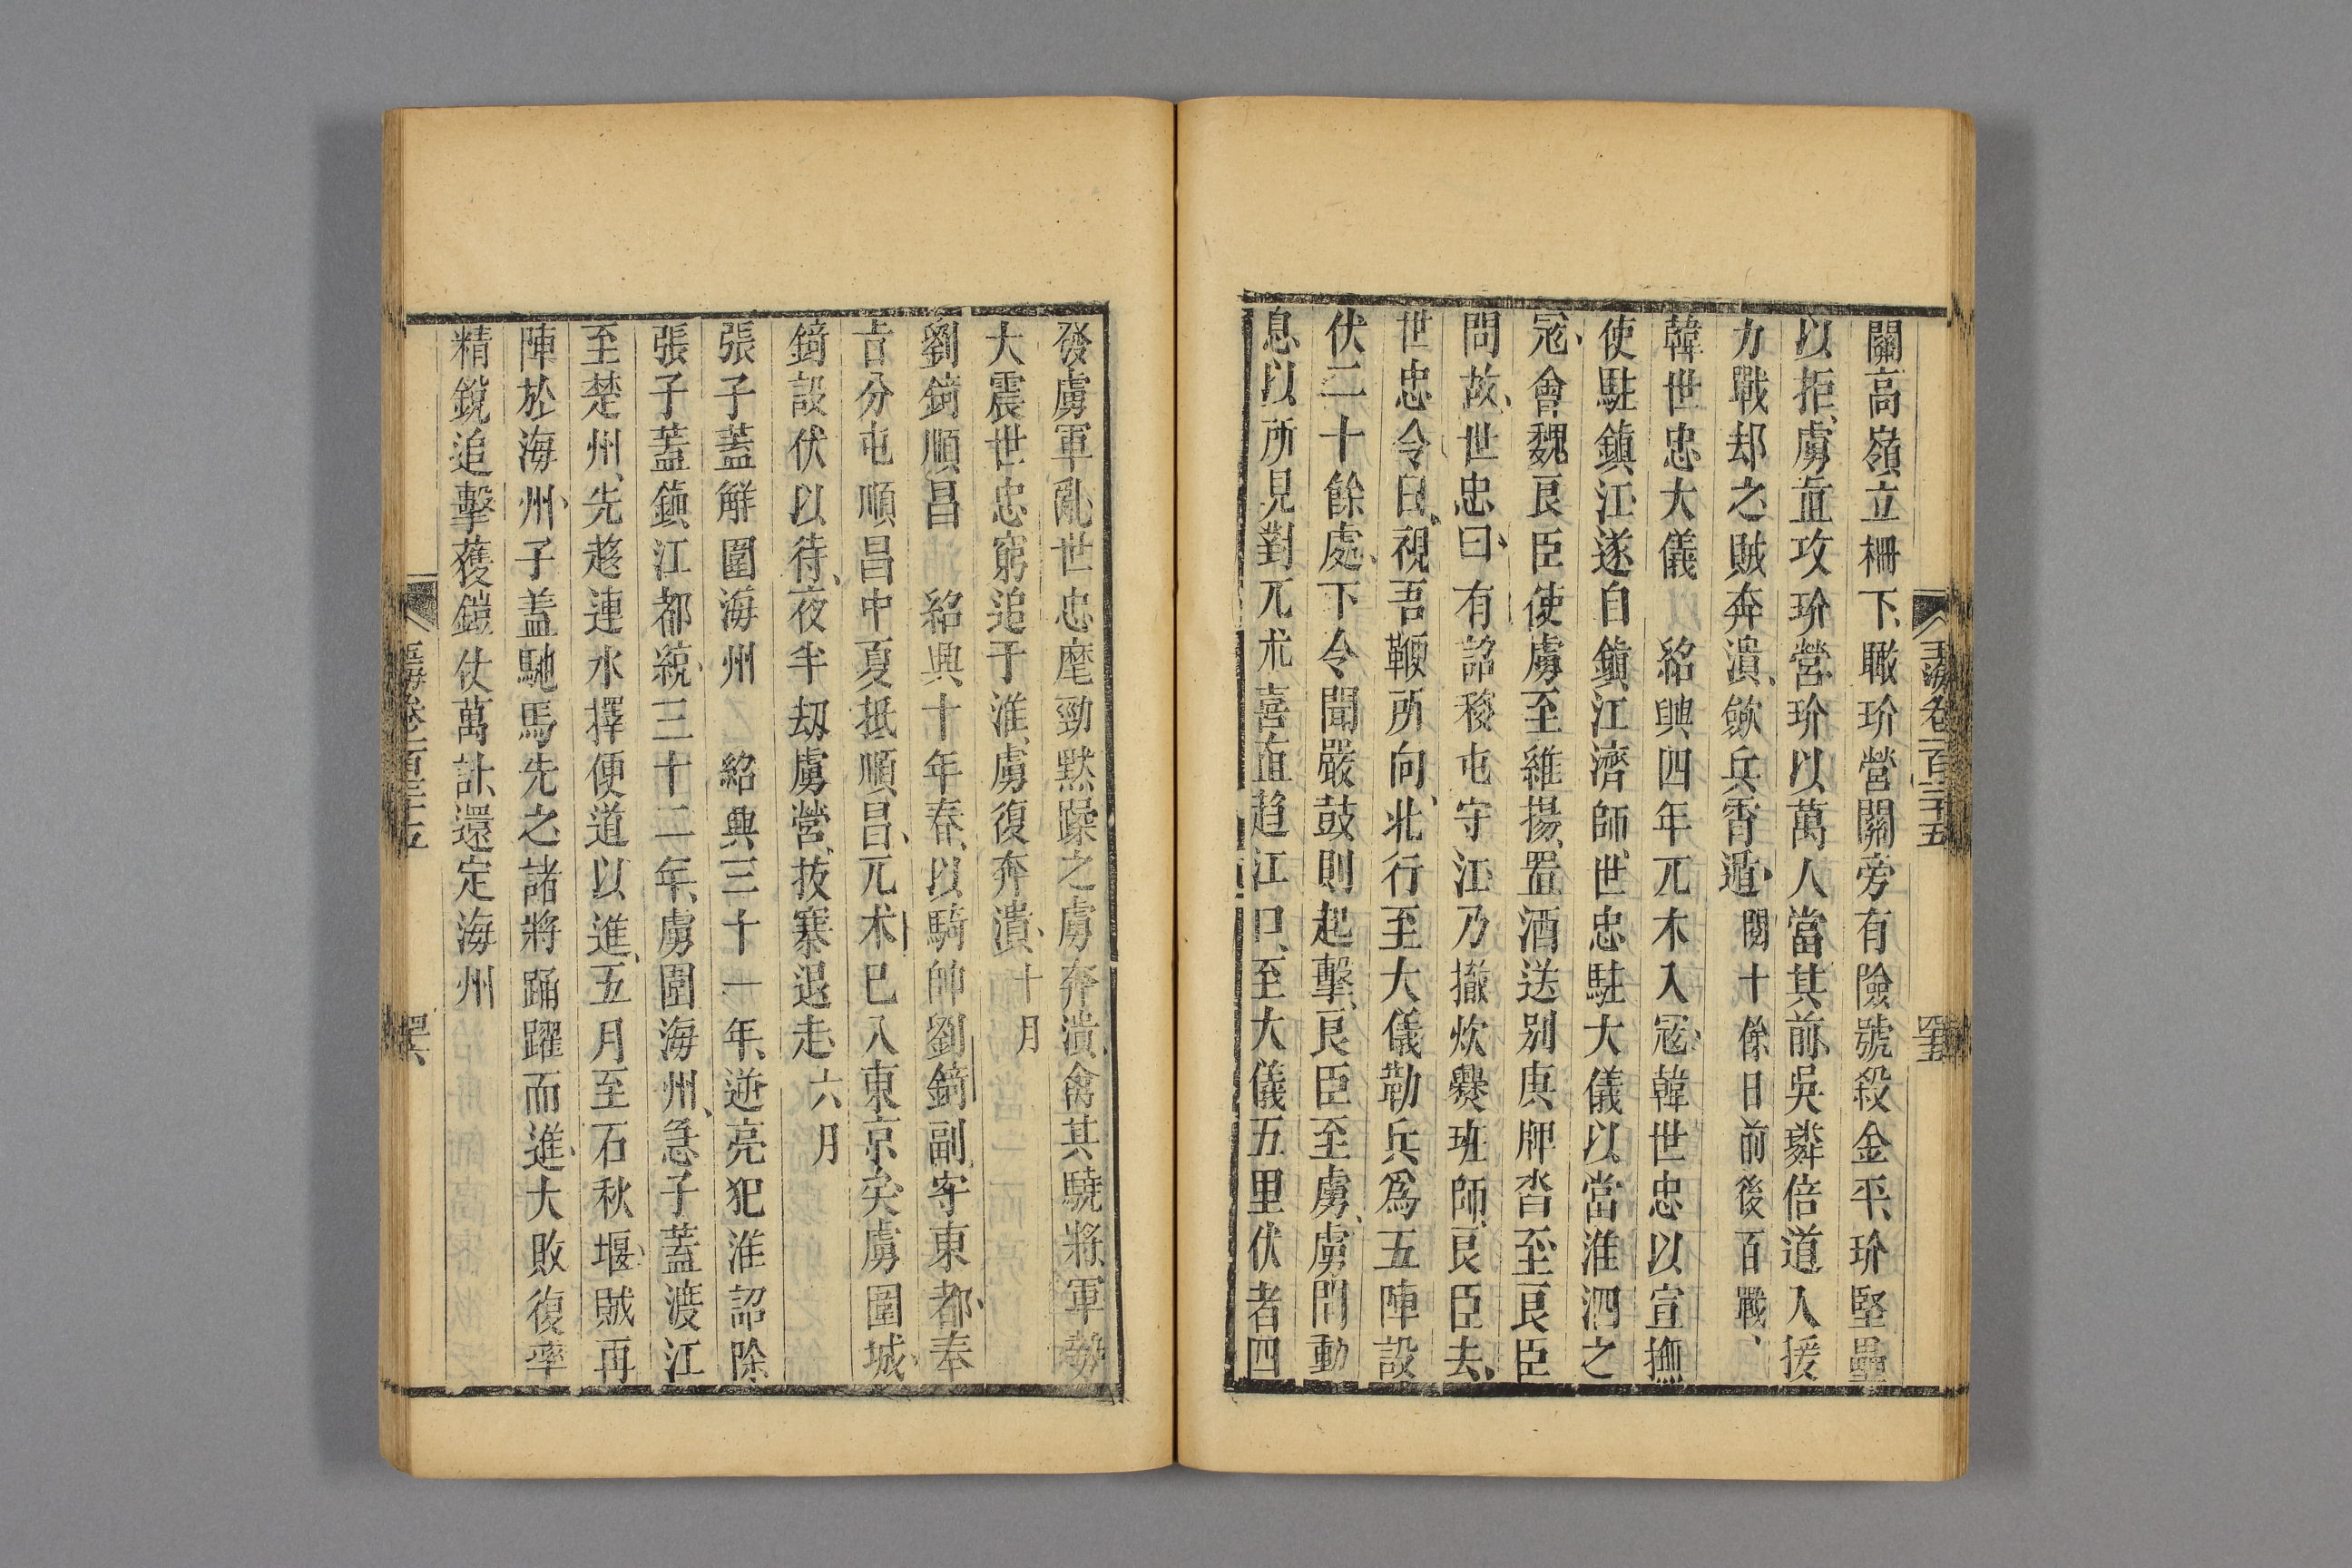 玉海卷一百三十五
關高嶺立柵下瞰玠營關旁有險號殺金平玠堅壘
以拒虜直攻玠營玠以萬人當其前吳璘倍道入援
力戰却之賊奔潰歛兵霄遁閱十餘日前後百戰
韓世忠大儀 紹興四年兀木入寇韓世忠以宣撫
使駐鎮江遂自鎮江濟師世忠駐大儀以當淮泗之
寇會魏良臣使虜至維揚置酒送别庚牌沓至良臣
問故世忠曰有詔移屯守江乃撤炊爨班師良臣去
世忠令曰視吾鞭所向北行至大儀勒兵爲五陣設
伏二十餘處下令聞嚴鼓則起擊良臣至虜虜問動
息以所見對兀朮喜直趋江口至大儀五里伏者四
發虜軍亂世忠麾勁黙躁之虜奔潰禽其驍將軍勢
大震世忠窮追于淮虜復奔潰十月
劉錡順昌 紹興十年春以騎帥劉錡副守東都奉
吉分屯順昌中夏抵順昌兀术巳入東京矣虜圍城
錡設伏以待夜半刼虜營拔寨退走六月
張子蓋解圍海州 紹興三十一年逆亮犯淮詔除
張子蓋鎮江都統三十二年虜圍海州急子蓋渡江
至楚州先趍連水擇便道以進五月至石秋堰賊再
陣於海州子蓋馳馬先之諸將踊躍而進大敗復率
精銳追擊獲鎧仗萬計還定海州